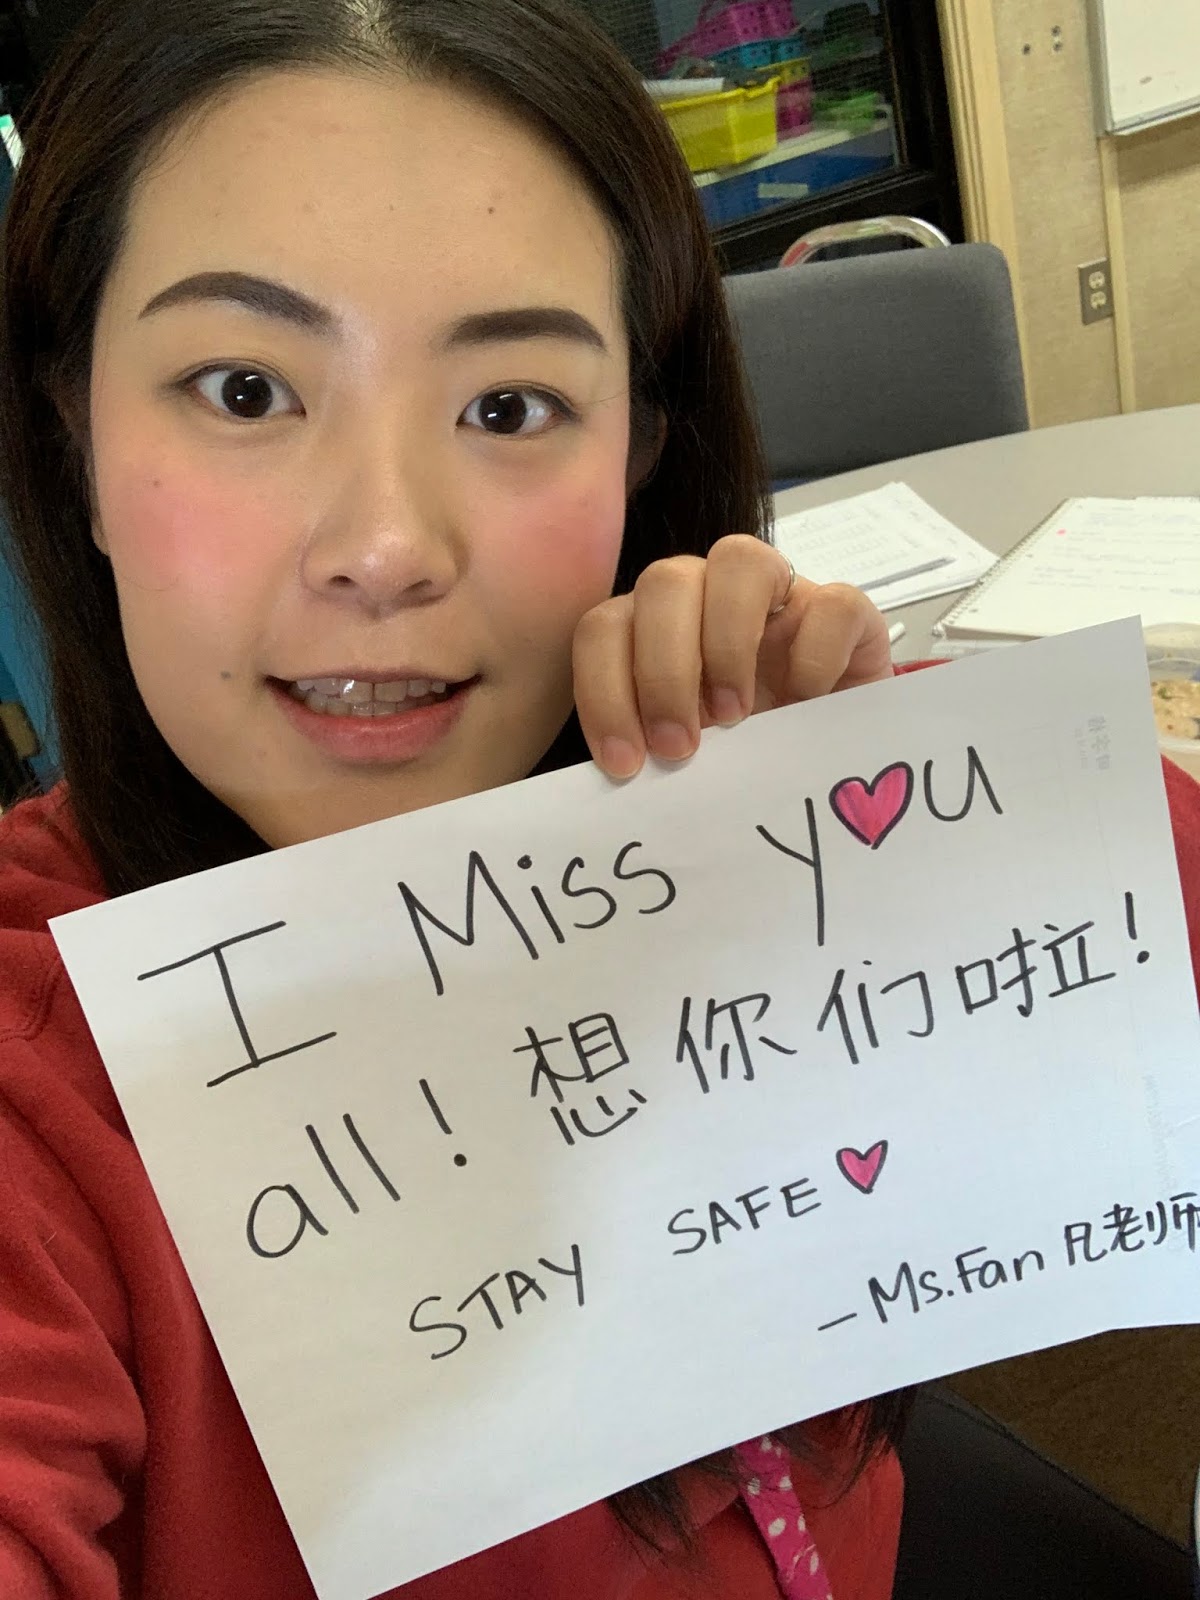 I Miss you
all! 想你们啦!
STAY SAFE
—Ms. Fan 凡老师